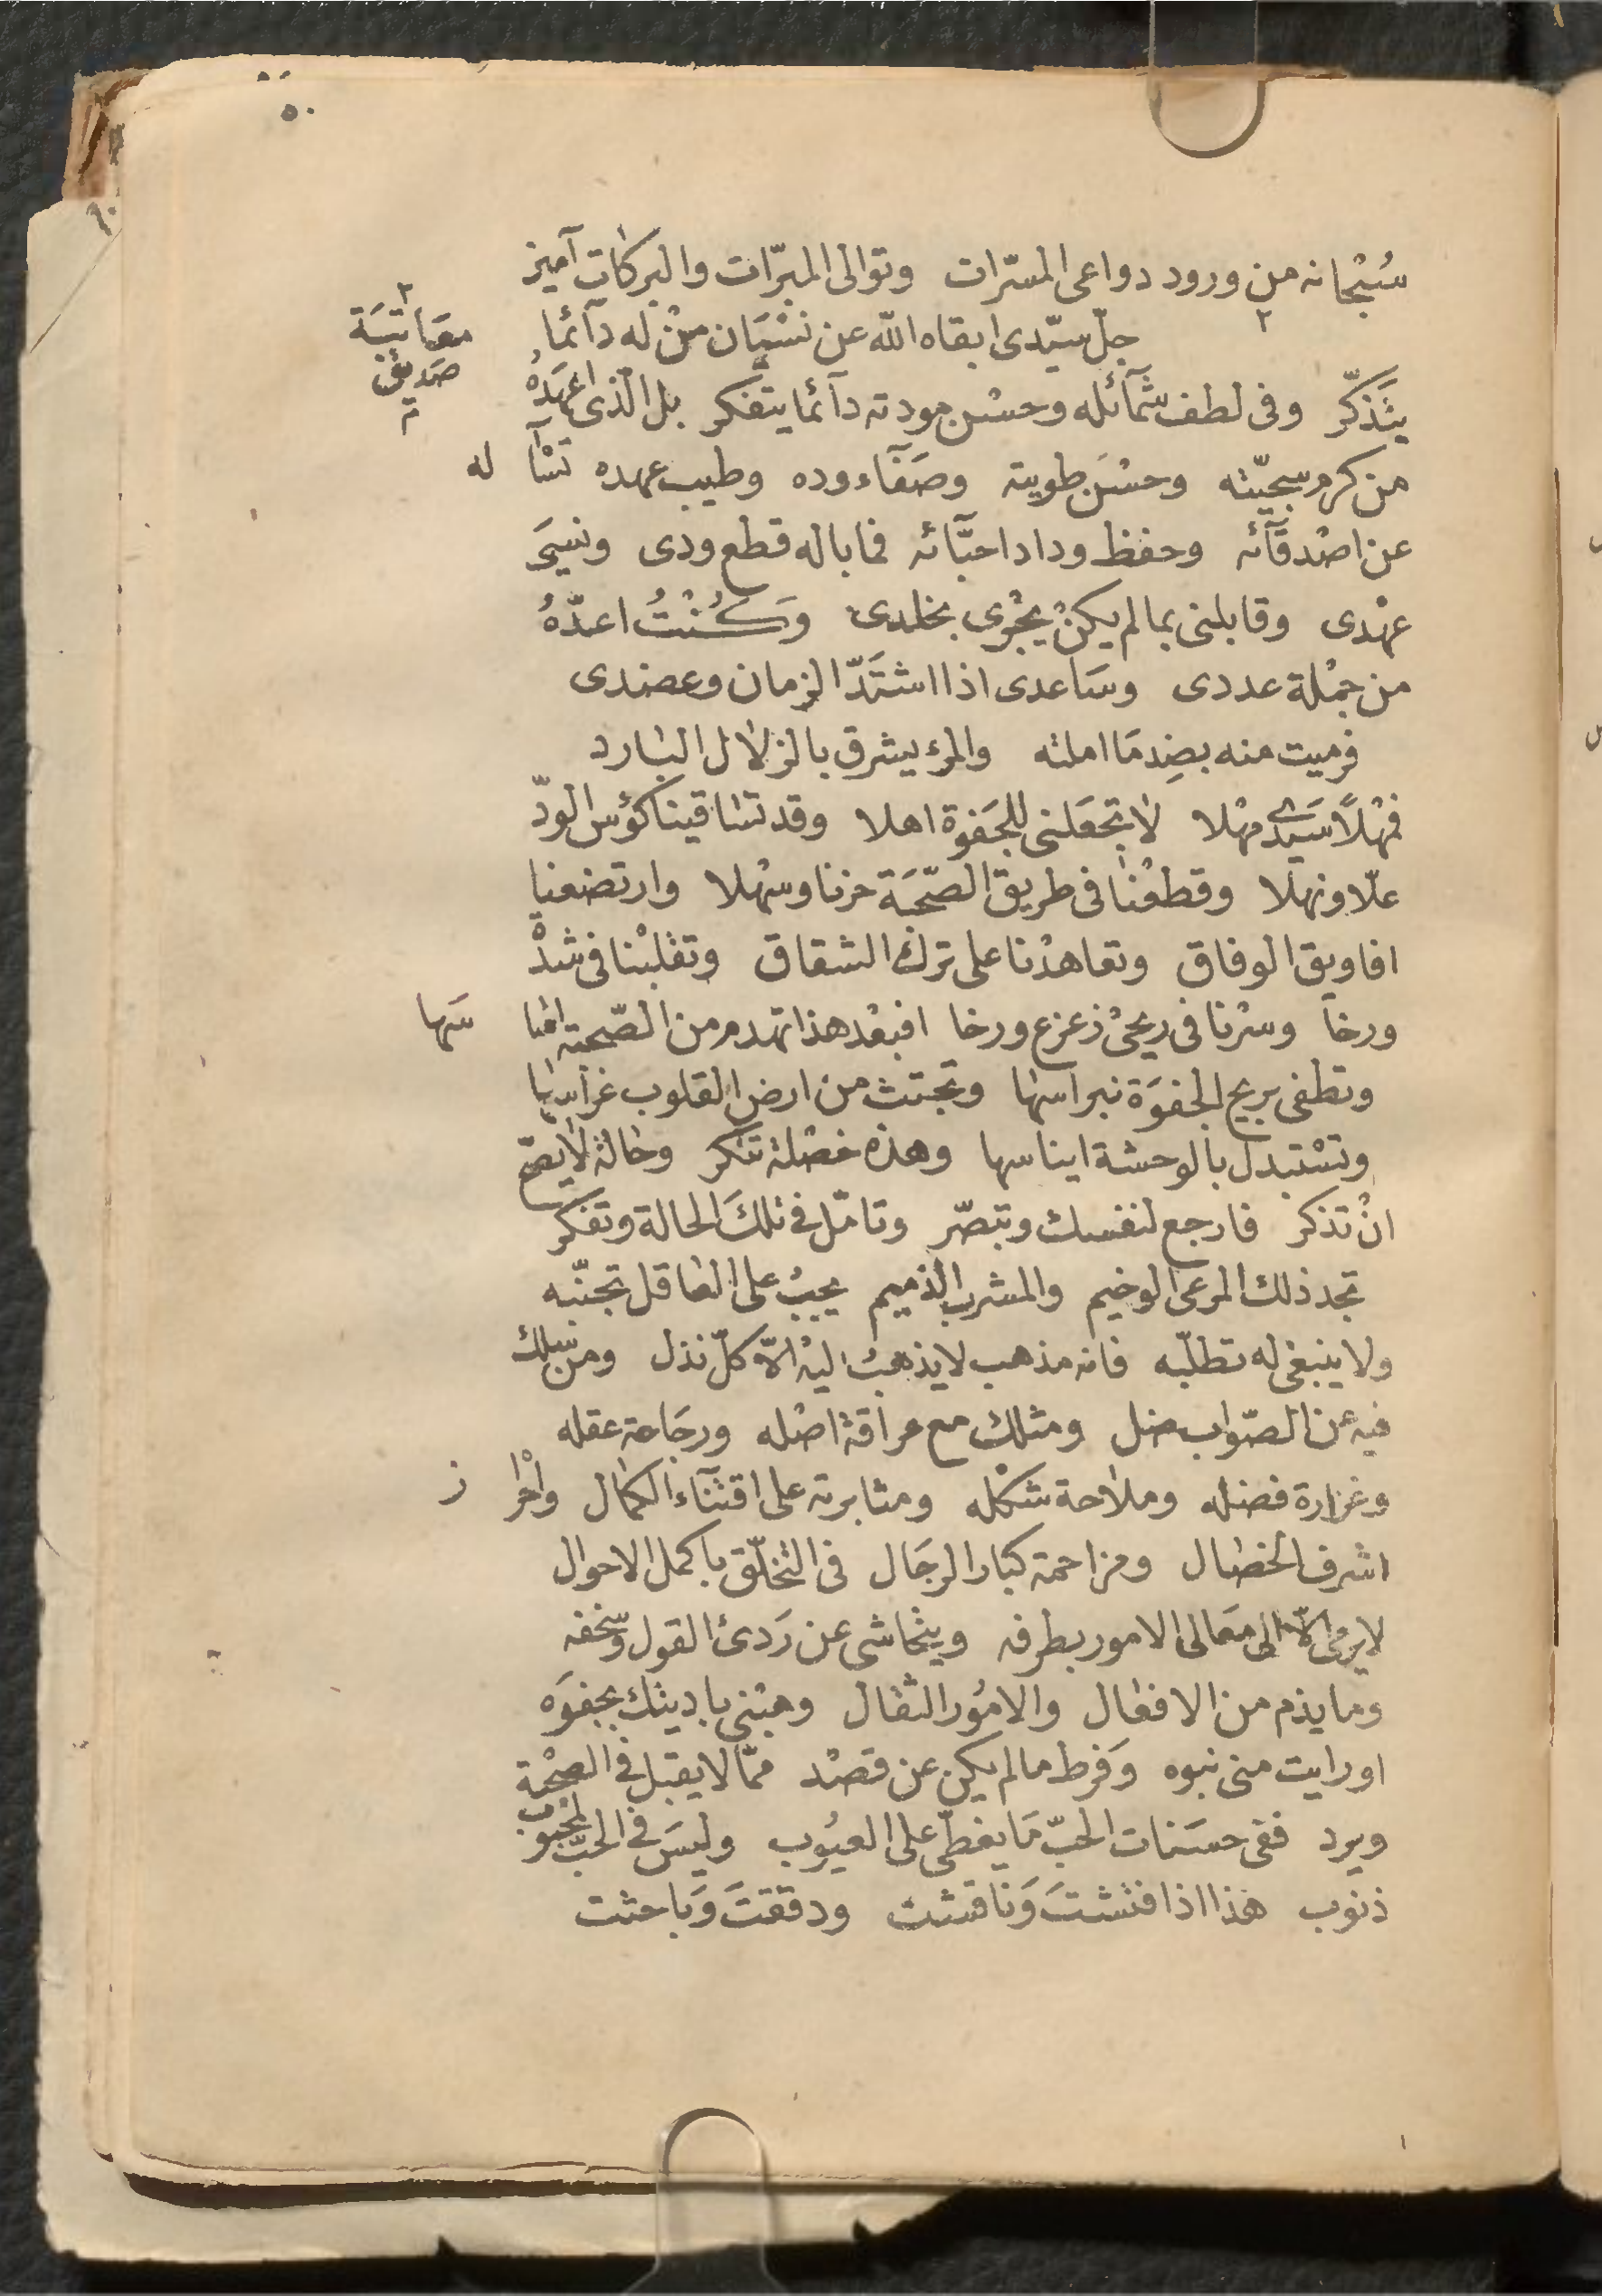 ٥٠
سُبْحانه من ورود دواعى المسرّات وتوالى المبرّات والبركات آمين
جلّ سيّدى ابقاه الله عن نسْيَان منْ له دآئما
معَاتبَة
صَديق
يتَذكّر وفى لطف شمآئله وحسْن مودته دآئما يتفكر بل الذى اعهَدهُ
من كرم سجيّته وحسْن طويته وصَفآء وده وطيب عهده تسْآ له
عن اصْدقآئه وحفظ وداد احبَّائه فما باله قطع ودى ونسِىَ
عهْدى وقابلنى بما لم يكنْ يجْرى بخلدى وَكُنْتُ اعدّهُ
من جمْلة عددى وسَاعدى اذا اشتَدّ الزمان وعضدى
فرميت منه بضِد مَا املته والمرؤ يشرق بالزلال البارد
فمهْلاً سَيّدى مهْلا لا تجعَلنى للجَفوة اهلا وقد تساقينا كؤس الودّ
علّا ونهلا وقطعْنا فى طريق الصّحبَة حزنا وسهْلا وارتضعنا
افاويق الوفاق وتعاهدْنا على ترك الشقاق وتقلبْنا فى شدْ
ورخا وسرْنا فى ريحىْ زعزع ورخا افبعْد هذا تهدم من الصّحبة اسَا سَها
وتطفى بريح الجفوَة نبراسها وتجتث من ارض القلوب غراسها
وتسْتبدل بالوحشة ايناسها وهذه خصْلة تنكر وحالة لا يصحّ
انْ تذكر فارجع لنفسك وتبصّر وتامّل فى تلكَ الحالة وتفكر
تجد ذلك المرعى الوخيم والمشرب الذميم يجبُ على العاقل تجنّبه
ولا ينبغى له تطلّبه فانه مذهب لا يذهبُ اليْه الّا كلّ نذل ومن سلك
فيه عن الصّواب ضل ومثلك مع عراقة اصْله ورجَاحة عقله
وغزارة فضله وملاحة شكْله ومثابرته على اقتنآء الكمال واحْرا ز
اشرف الخصَال ومزاحمة كبار الرجَال فى التخلّق باكمل الاحوال
لا يرمى الّا الى معَالى الامور بطرفه ويتحاشى عن رَدئ القول وسخفه
وما يذم من الافعال والامُور الثقال وهبْنى باديتك بجفوَه
او رايت منى نبوه وَفرط ما لم يكن عن قصْد ممّا لا يقبل فى الصحْبة
ويرد ففى حسَنات الحبّ مَا يغطى على العيُوب وليسَ فى الحبّ لمحْبُوب
ذنوب هذا اذا فتشتَ وَناقشت ودققتَ وَباحثت